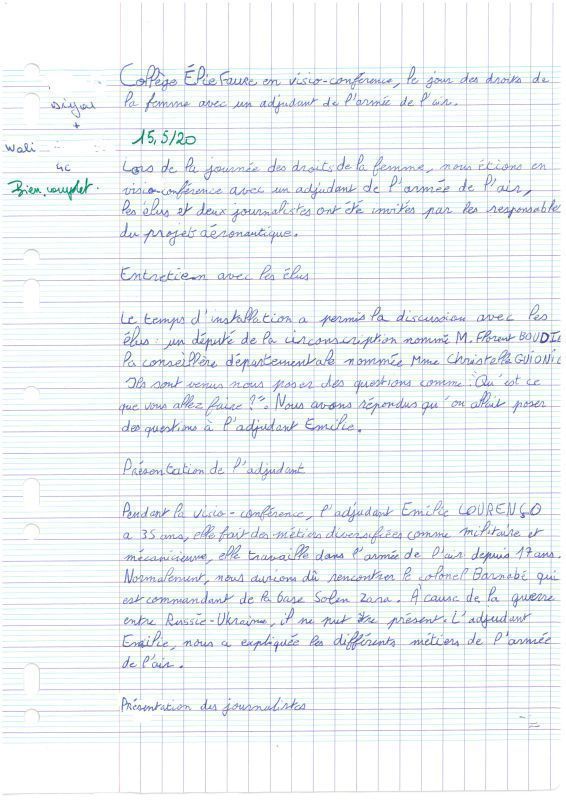 Collège Élie Faure en visio-conférence, le jour des droits de
la femme avec un adjudant de l'armée de l'air.
+
Wali
15,5/20
4C
Bien, complet.
Lors de la journée des droits de la femme, nous étions en
visio-conférence avec un adjudant de l'armée de l'air,
les élus et deux journalistes ont été invités par les responsable
du projet aéronautique.
Entretien avec les élus
Le temps d'installation a permis la discussion avec les
élus : un député de la circonscription nommé M. Florent BOUDIE
la conseillère départementale nommée Mme Christelle GUIONIE
Ils sont venus nous poser des questions comme: Qu'est ce
que vous allez faire ?". Nous avons répondus qu'on allait poser
des questions à l'adjudant Emilie.
Présentation de l'adjudant
Pendant la visio-conférence, l'adjudant Emilie LOURENÇO
a 35 ans, elle fait des métiers diversifiées comme militaire et
mécanicienne, elle travaille dans l'armée de l'air depuis 17 ans.
Normalement, nous aurions dû rencontrer le colonel Barnabé qui
est commandant de la base Solen zara. A cause de la guerre
entre Russie-Ukraine, il ne put être présent. L'adjudant
Emilie, nous a expliquée les différents métiers de l'armée
de l'air.
Présentation des journalistes